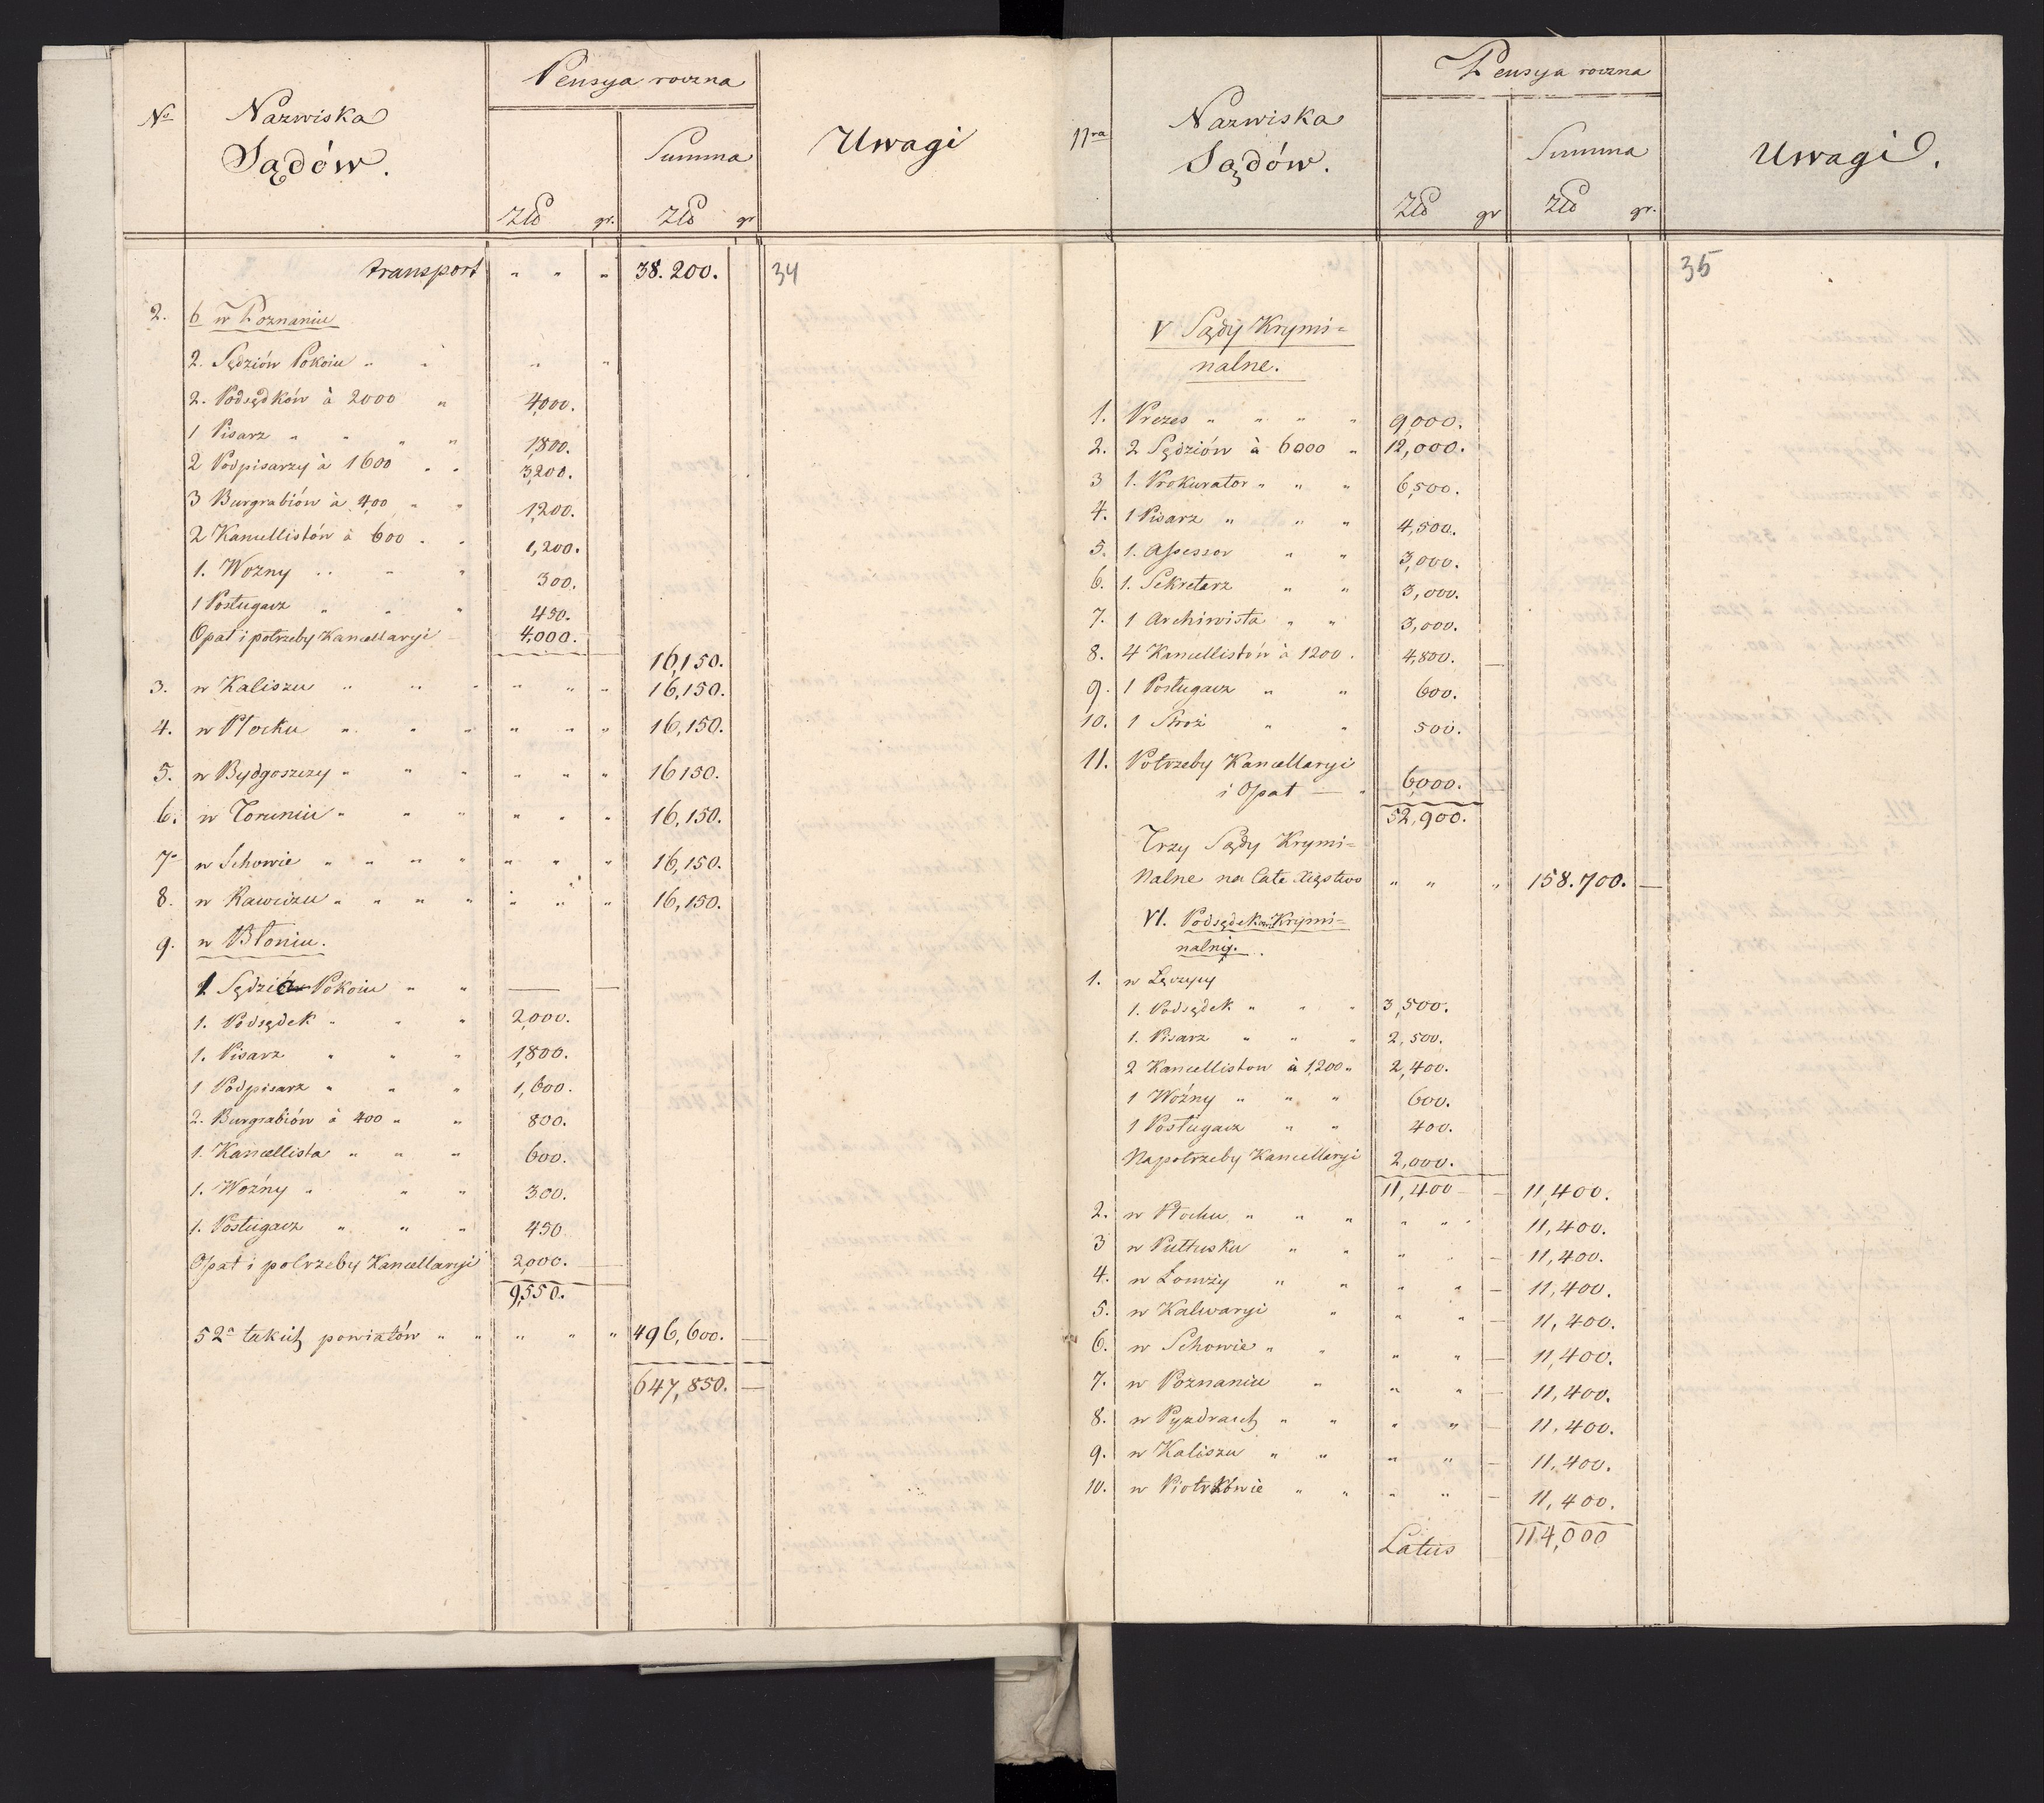 Nº
Nazwiska
Sądów.
Pensya roczna
Summa
Złō gr. Złō gr
Uwagi
transport " " " 38.200.
34
2. 6 w Poznaniu
2. Sędziów Pokoiu " " " "
2. Podsędków à 2000 " 4,000.
1 Pisarz " " " " 1,800.
2 Podpisarzy à 1600 " " 3,200.
3 Burgrabiów à 400 " " 1,200.
2 Kancellistów à 600 " " 1,200.
1. Wozny " " " 300.
1 Posługacz " " " 450.
Opał i potrzeby Kancellaryi 4,000.
16,150.
3. w Kaliszu " " " " " " 16,150.
4. w Płocku " " " " " " 16,150.
5. w Bydgoszczy " " " " " " 16150.
6. w Toruniu " " " " " " 16,150.
7. w Schowie " " " " " " " 16,150.
8. w Rawiczu " " " " " " " 16,150.
9. w Błoniu.
1 Sędzia Pokoiu " " —
1. Podsędek " " " 2,000.
1. Pisarz " " " 1,800.
1 Podpisarz " " " 1,600.
2. Burgrabiów à 400 " " 800.
1. Kancellista " " " 600.
1. Woźny " " " 300.
1. Posługacz " " " 450
Opał i potrzeby Kancellaryi 2,000.
9,550.
52ª takich powiatów " " " " " 496,600.
647,850.
Nra
Nazwiska
Sądów.
Pensya roczna
Summa
Złō gr Złō gr.
Uwagi.
35
V Sądy Krymi=
nalne.
1. Prezes " " " " 9,000.
2. 2 Sędziów à 6000 " 12,000.
3 1. Prokurator " " " 6,500.
4. 1 Pisarz " " " 4,500.
5. 1. Assessor " " 3,000.
6. 1. Sekretarz " " 3,000.
7. 1 Archiwista " " 3,000.
8. 4 Kancellistów à 1200. 4,800.
9. 1 Posługacz " " 600.
10. 1 Stroż " " 500.
11. Potrzeby Kancellaryi
i Opał — " 6,000.
52,900.
Trzy Sądy Krymi=
nalne na całe Xięstwo " " " 158.700.
VI. Podsędek Krymi=
nalny.
1. w Łęczycy
1. Podsędek " " " 3,500.
1. Pisarz " " " 2,500.
2 Kancellistow à 1,200 " 2,400.
1 Woźny " " " 600.
1 Posługacz " " 400.
Na potrzeby Kancellaryi 2,000.
11,400 — 11,400.
2. w Płocku " " " " " " 11,400.
3 w Pułtusku " " " " — 11,400.
4. w Łomży " " " " — 11,400.
5. w Kalwaryi " " " — 11,400.
6. w Schowie " " " " — 11,400.
7. w Poznaniu " " " — 11,400.
8. w Pyzdrach " " " " — 11,400.
9. w Kaliszu " " " " — 11,400.
10. w Piotrkowie " " " " — 11,400.
Latus 114,000